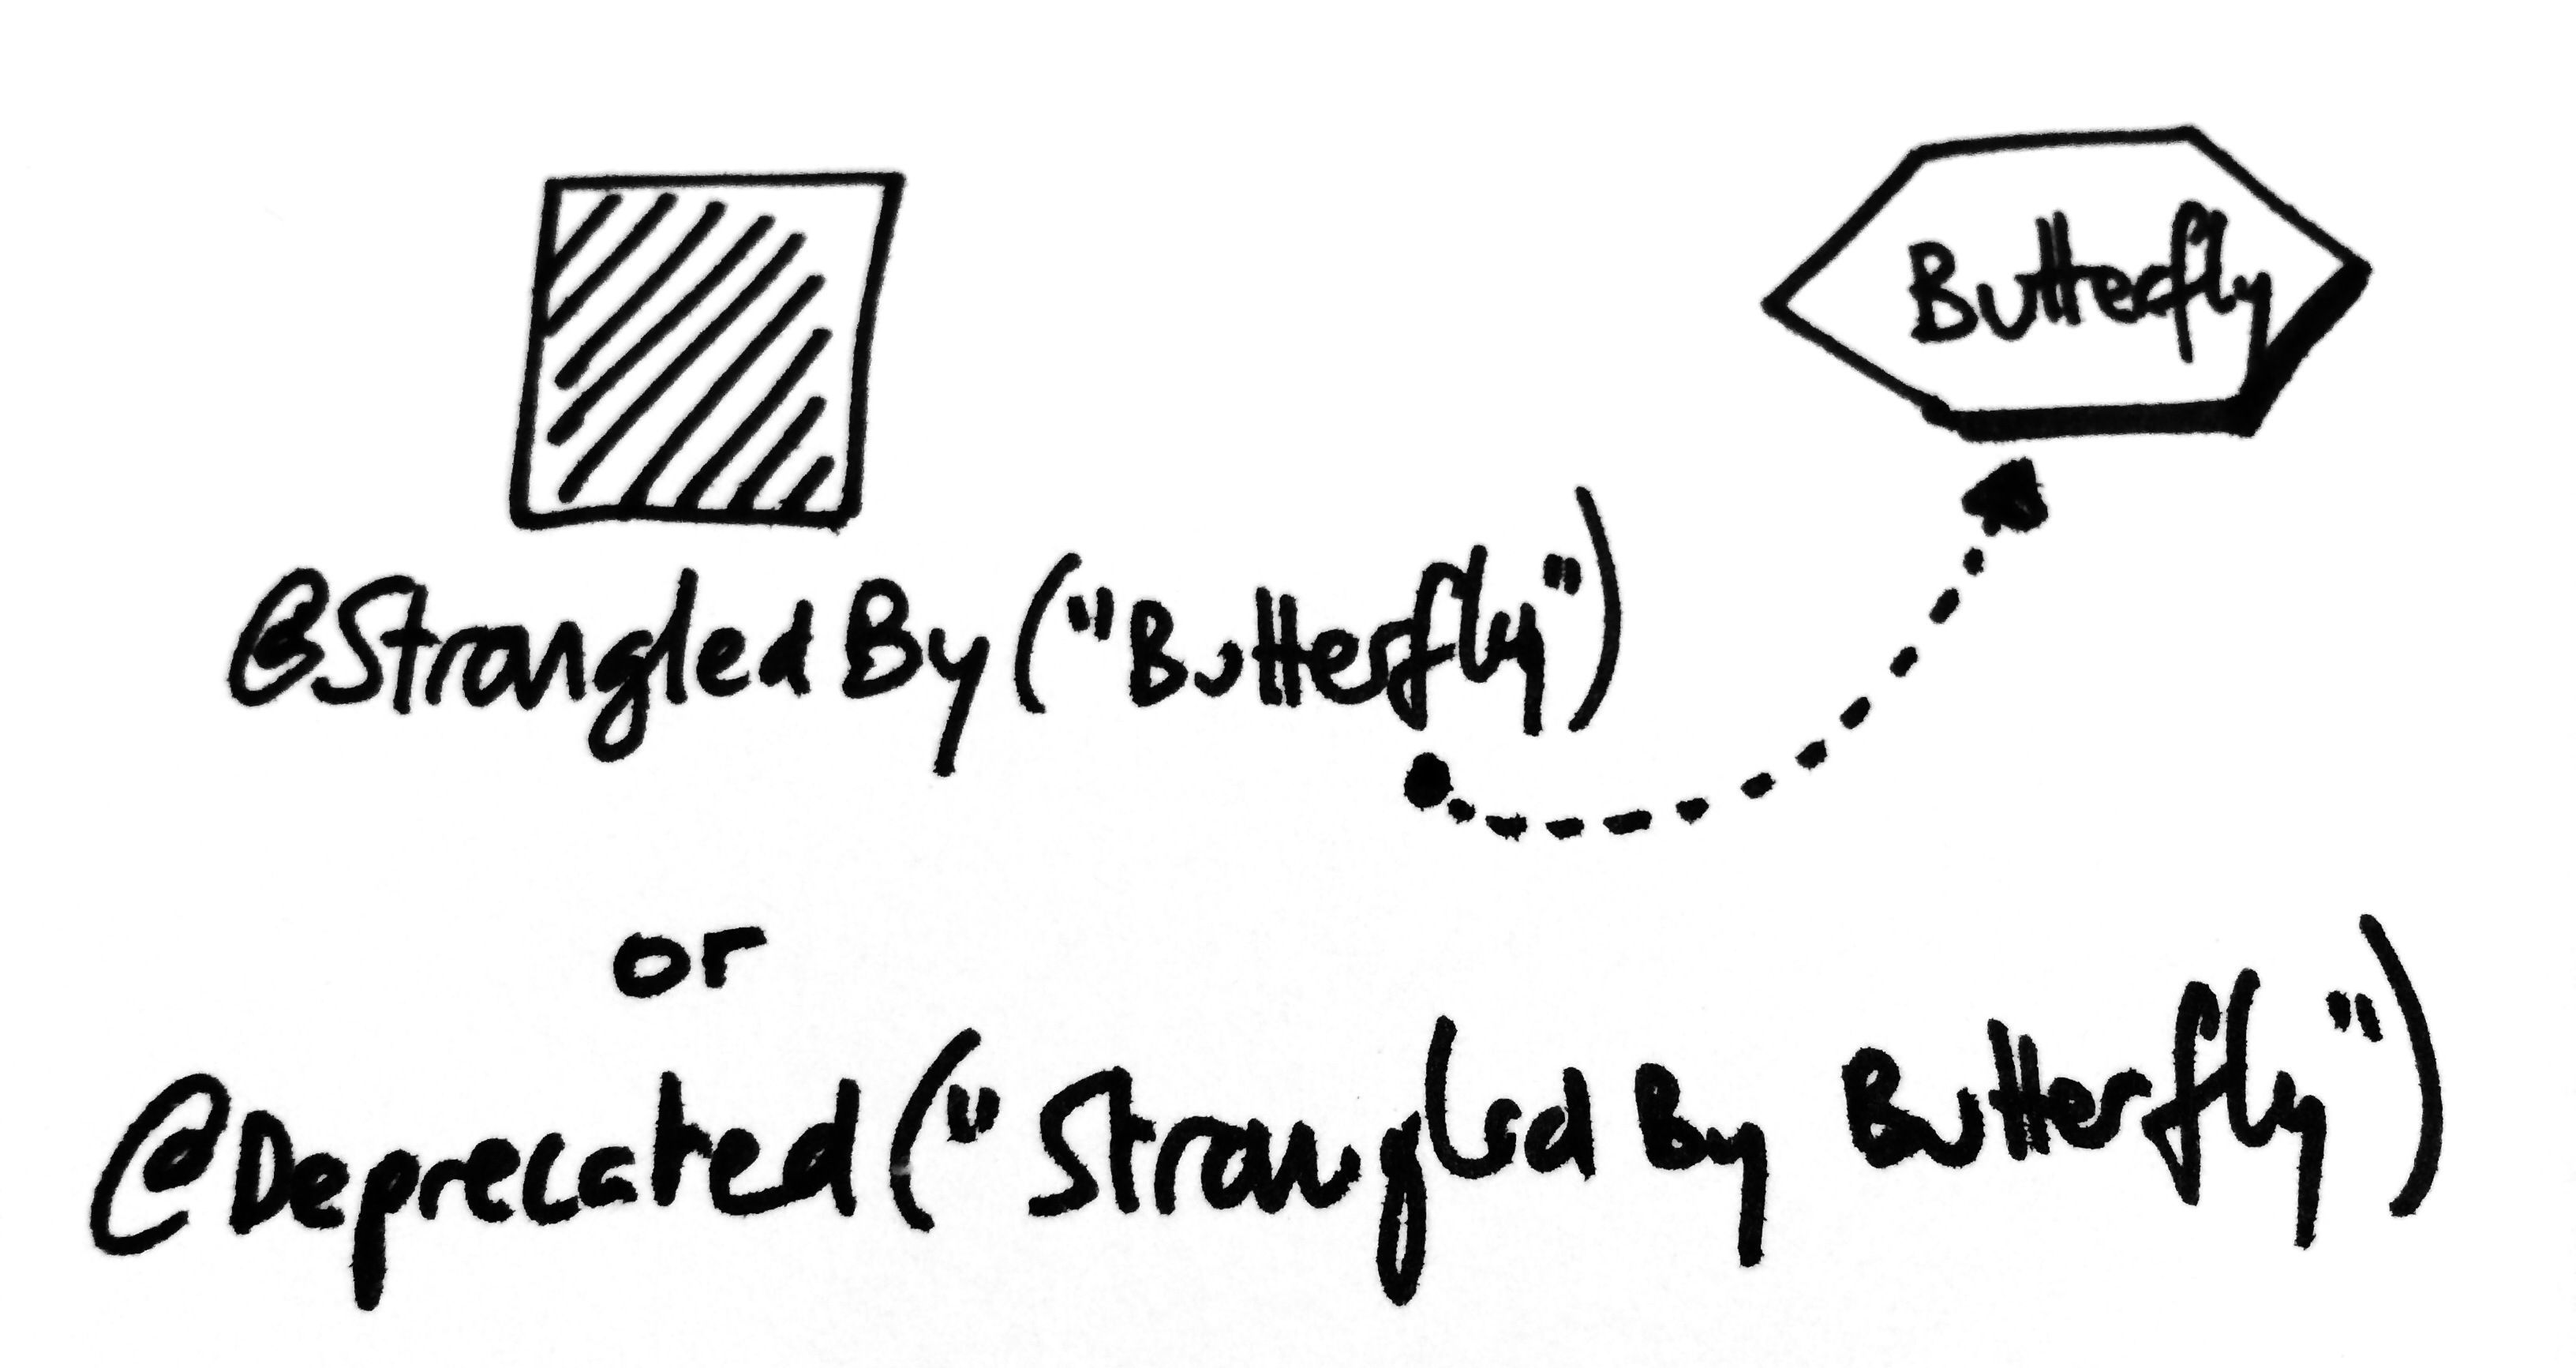 Butterfly
@StrangledBy("Butterfly")
or
@Deprecated("Strangled By Butterfly")